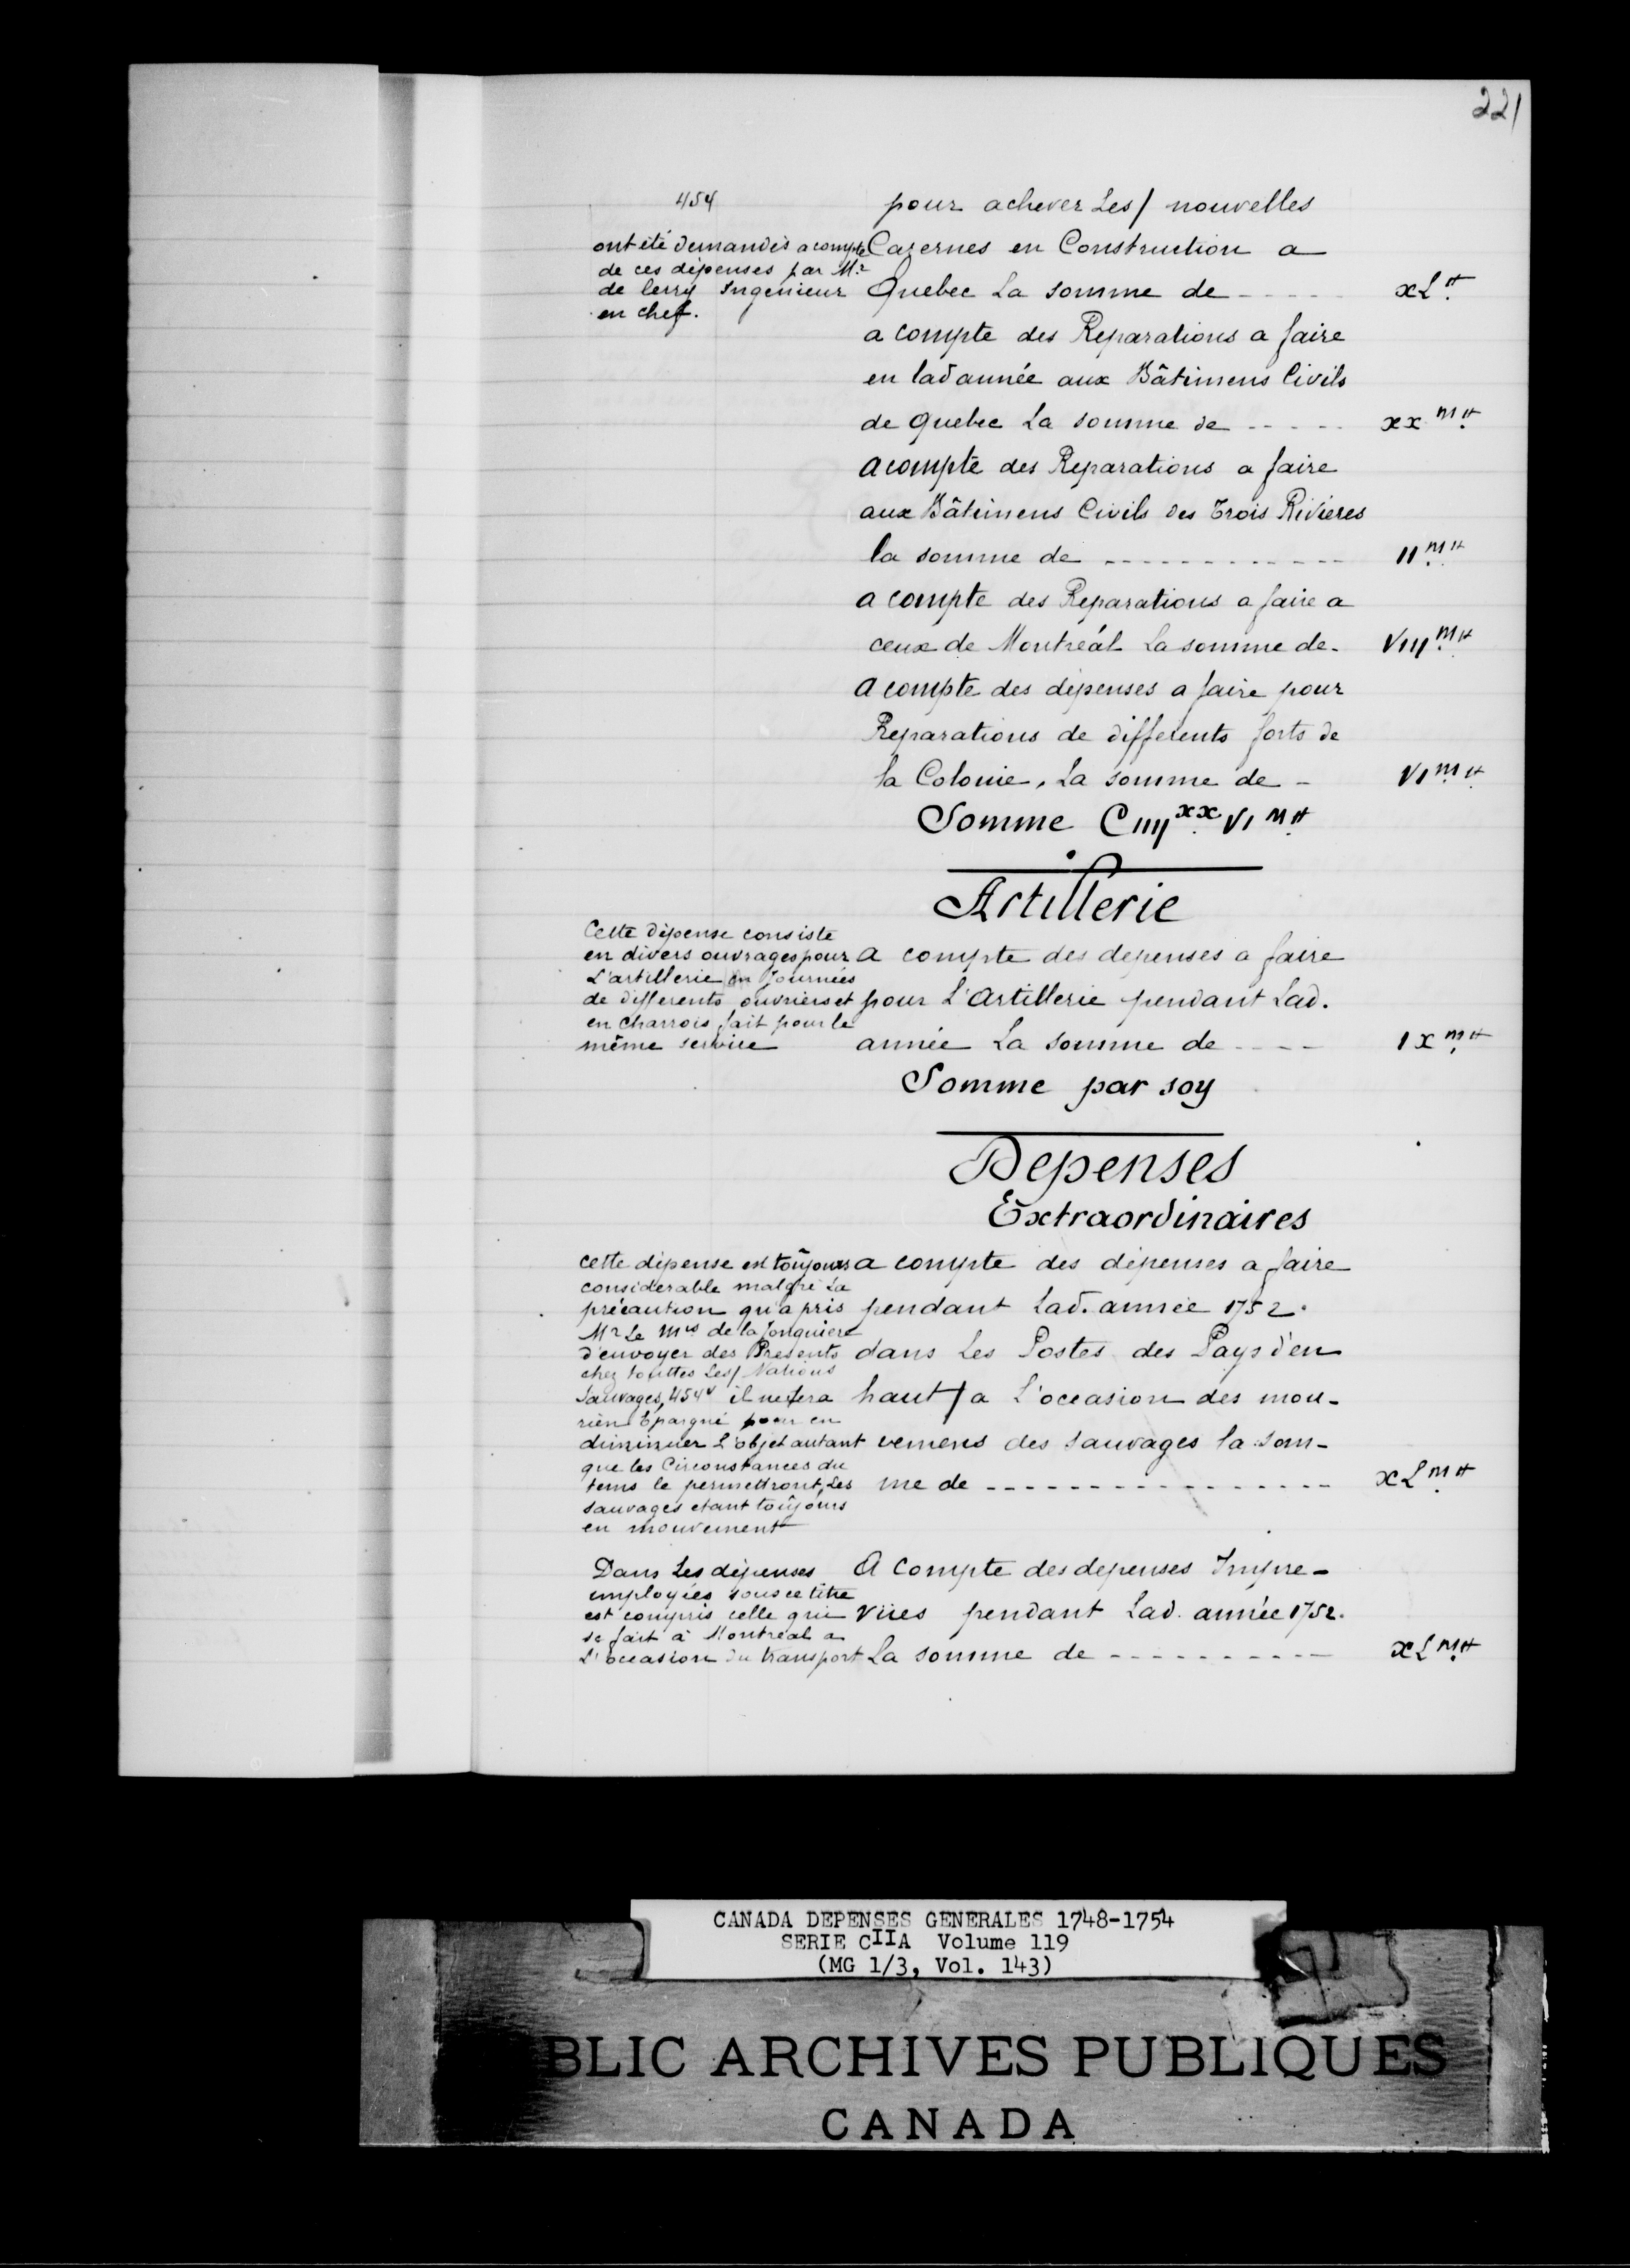 221
454
ont été demandés acompte
de ces dépenses par Mr
de lerry Ingenieur
en chef.
pour achever Les/ nouvelles
Cazernes en Construction a
Quebec La somme de ----- xL ₶
a compte des Reparations a faire
en lad année aux Bâtimens Civils
de Quebec La somme de ----- xx m ₶
a compte des Reparations a faire
aux Bâtimens Civils des Trois Rivieres
la somme de ------------ II m ₶
a compte des Reparations a faire a
ceux de Montréal La somme de - VIII m ₶
a compte des dépenses a faire pour
Reparations de differents forts de
la Colonie, La somme de - VI m ₶
Somme CIIII xx VI m ₶
Artillerie
Cette dépense consiste
en divers ouvrages pour
L'artillerie en Journées
de differents ouvriers et
en charrois fait pour le
même service
a compte des depenses a faire
pour L'Artillerie pendant Lad.
année La somme de ---- Ix m ₶
Somme par soy
Depenses
Extraordinaires
Cette dépense est toûjours
considerable malgré La
précaution qu'a pris
Mr Le Mis de la Jonquiere
d'envoyer des Presents
chez touttes Les/ Nations
Sauvages, 454v il ne sera
rien Epargné pour en
diminuer L'objet autant
que les Circonstances du
tems le permettront, Les
sauvages etant toûjours
en mouvement
a compte des dépenses a faire
pendant Lad. année 1752.
dans Les Postes des Pays d'en
haut / a L'occasion des mou-
vemens des sauvages la som-
me de ---------------- xL m ₶
Dans Les dépenses
employées sous ce titre
est compris celle qui
se fait à Montreal a
L'occasion du transport
A Compte des depenses Impre-
vües pendant Lad. année 1752.
La somme de ---------- xL m ₶
CANADA DEPENSES GENERALES 1748-1754
SERIE CIIA Volume 119
(MG 1/3, Vol. 143)
BLIC ARCHIVES PUBLIQUES
CANADA